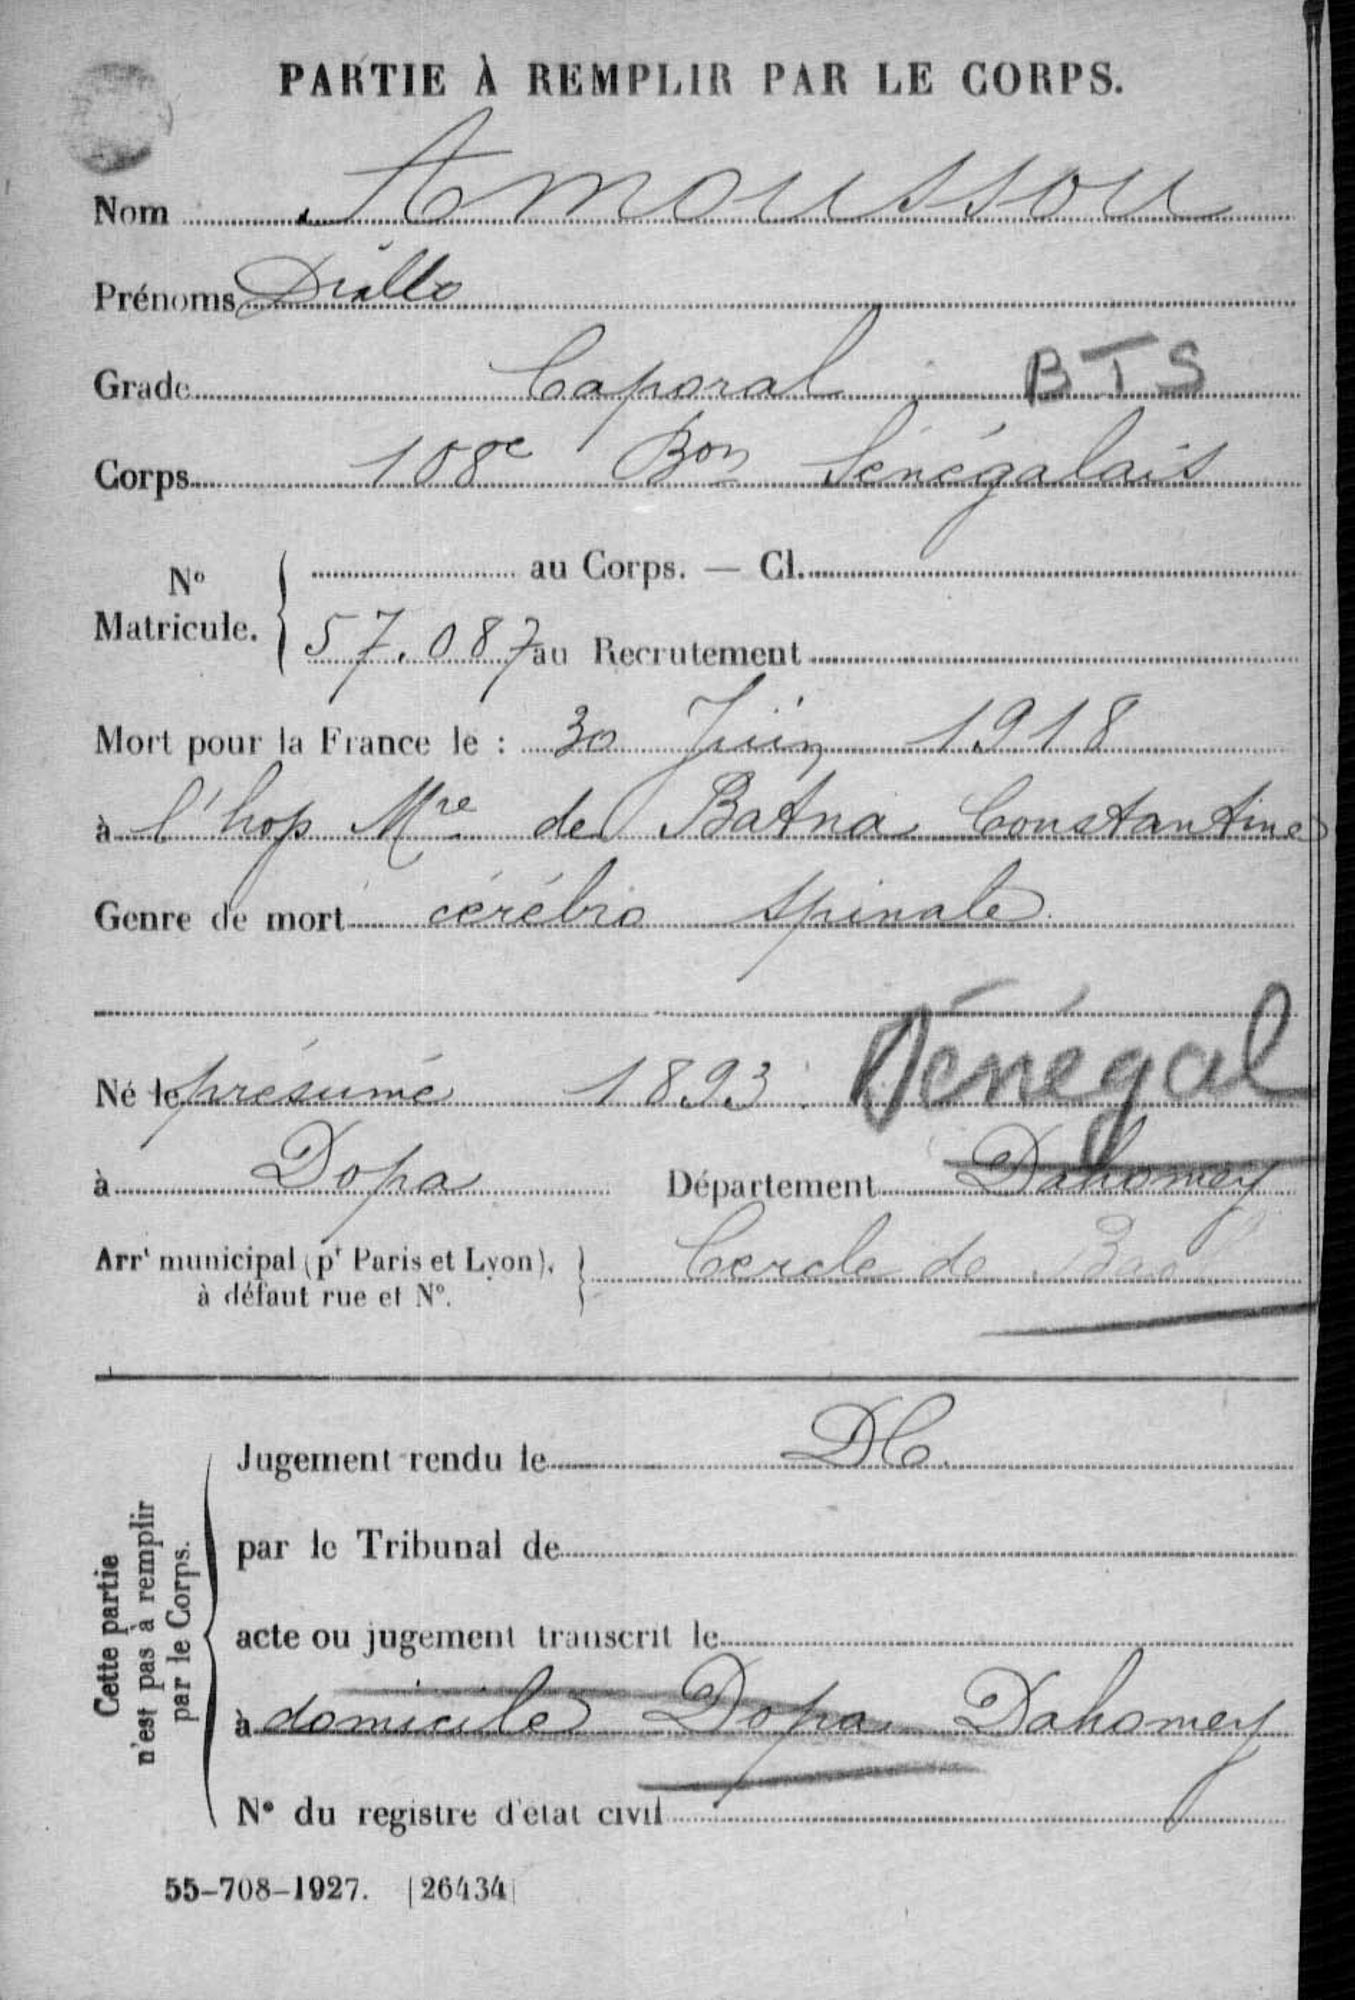 PARTIE À REMPLIR PAR LE CORPS.
Nom Amoussou
Prénoms Diallo
Grade Caporal BTS
Corps 108e Bon Sénégalais
No Matricule. { au Corps. — Cl.
57.087 au Recrutement
Mort pour la France le : 30 Juin 1918
à l'hop Mre de Batna Constantine
Genre de mort cérébro spinale
Né le présumé 1893 Sénégal
à Dopa Département Dahomey
Arrt municipal (pt Paris et Lyon), à défaut rue et No. } Cercle de
Cette partie n'est pas à remplir par le Corps.
Jugement rendu le DC.
par le Tribunal de
acte ou jugement transcrit le
à domicile Dopa Dahomey
No du registre d'état civil
55-708-1927. [26434]